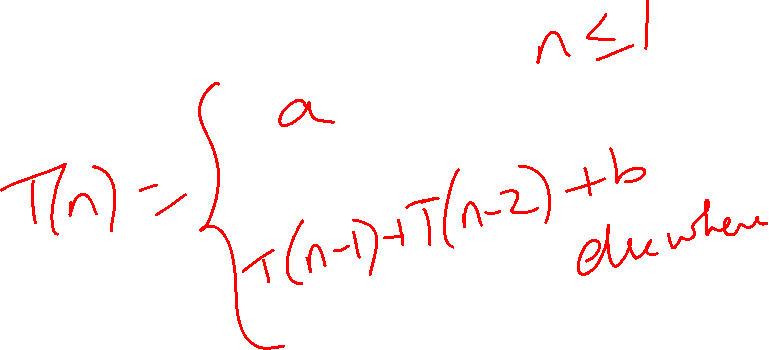 T(n) = { a n ≤ 1
T(n-1)+T(n-2)+b
elsewhere